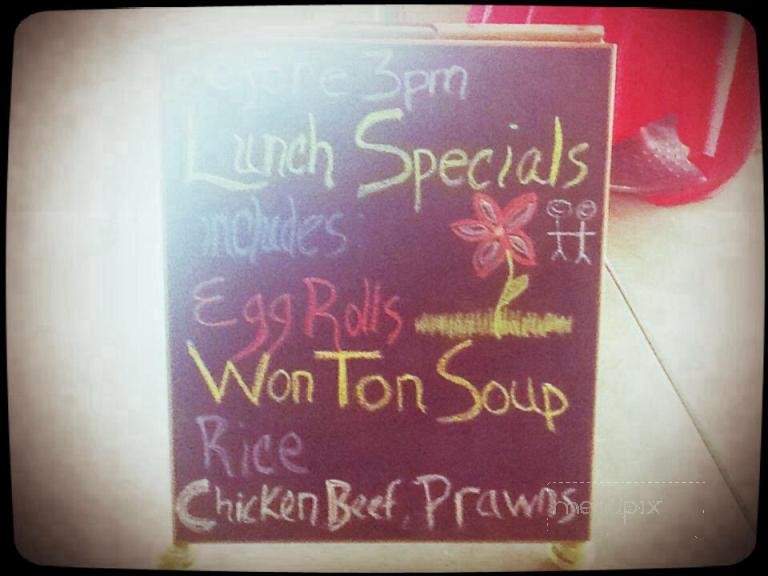 Before 3pm
Lunch Specials
includes:
Egg Rolls
Won Ton Soup
Rice
Chicken Beef, Prawns
menupix